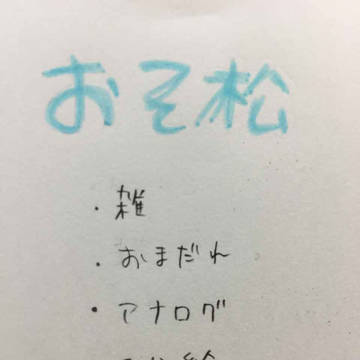 おそ松
・雑
・おまだれ
・アナログ